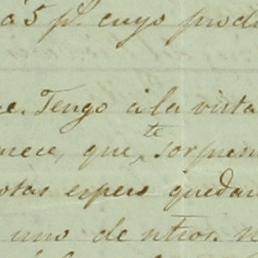 á 5 p%. cuyo produ
e. Tengo á la vista
nece, que te sorpren
otas espero quedar
uno de ntros. n